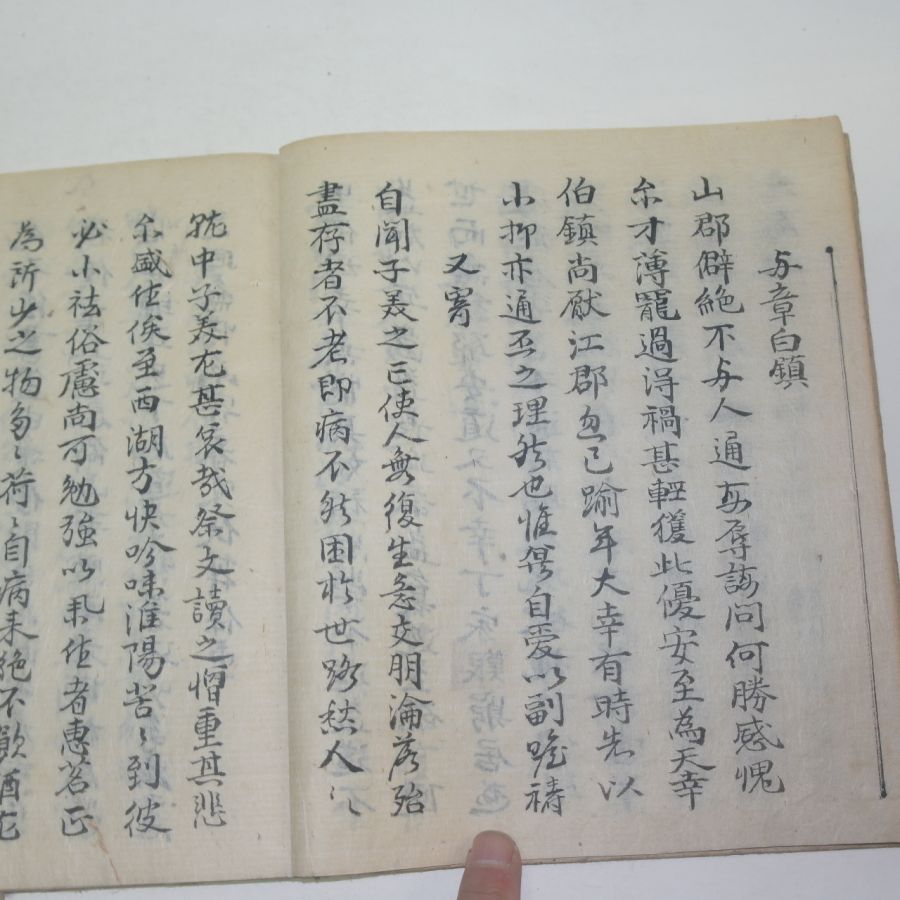 与章白鎮
山郡僻絶不与人通每辱誨问何勝感愧
尔才薄罷過淂禍甚輕獲此優安至為天幸
伯鎮尚厭江郡忽已踰年大幸有時先以
小抑亦通否之理然也惟冀自愛以副瞻禱
又寄
自聞子美之亡使人無復生意交朋淪落殆
盡存者不老即病不然困於世路愁人〻
就中子美尤甚哀哉祭文讀之增重其悲
尔盛作俟至西湖方快吟味淮陽苦〻到彼
必小祛俗慮尚可勉強以承作者惠茗正
為所少之物多〻荷〻自病来絶不飲酒尤